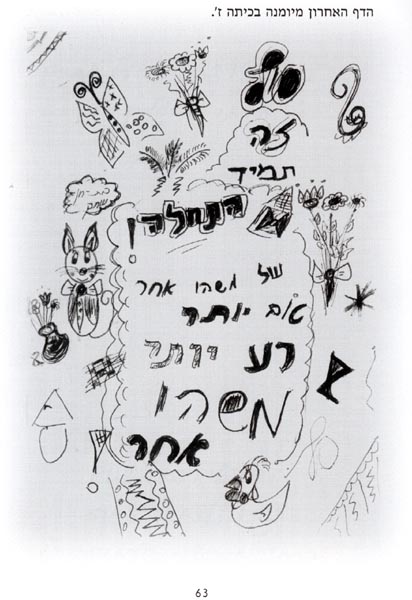 הדף האחרון מיומנה בכיתה ז'.
סוף
זה
תמיד
התחלה!
של משהו אחר
טוב יותר
רע יותר
משהו
אחר
63